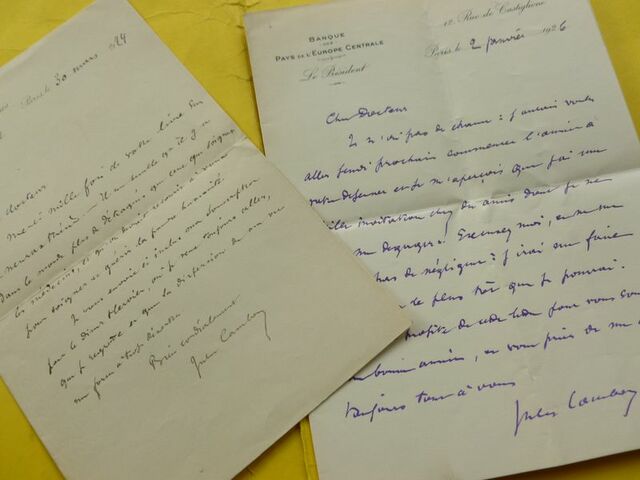 Paris le 30 mars 1924
docteur
merci mille fois de votre livre sur
neurasthénie. Il me semble qu'il y a
Dans le monde plus de détraqués que ceux qui soignent
les médecins, et qu'on
pour soigner et guérir la pauvre humanité
Je vous envoie ci inclus ma souscription
pour le dîner où je veux toujours aller,
que je regrette et que la dispersion de ma vie
me force à
Bien cordialement
Jules Cambon
BANQUE
DES
PAYS DE L'EUROPE CENTRALE
Le Président
12, Rue de Castiglione
Paris le 2 janvier 1926
Cher Docteur
Je n'ai pas de chance : j'aurais voulu
aller jeudi prochain commencer l'année à
votre déjeuner et je m'aperçois que j'ai une
invitation chez des amis dont je ne
me dégager. Excusez moi, et ne me
pas de négligence : j'irai me faire
le plus tôt que je pourrai.
profite de cette lettre pour vous
bonne année, et vous prier de me
toujours tout à vous
Jules Cambon